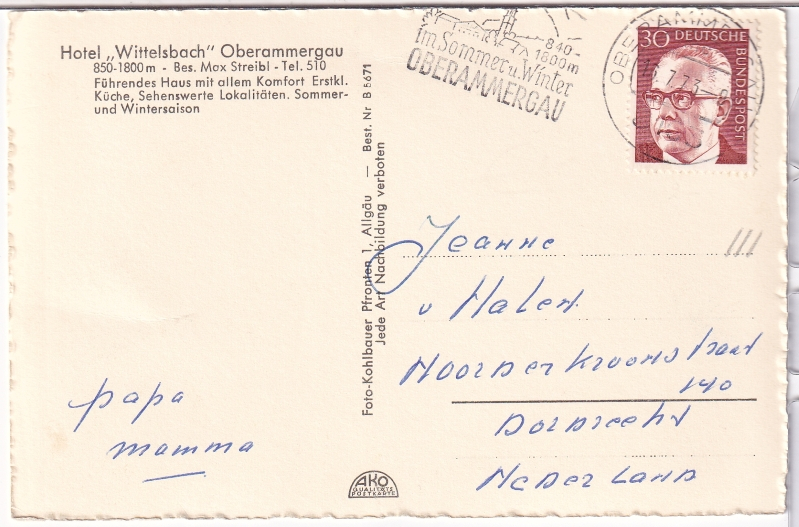 Hotel „Wittelsbach" Oberammergau
850-1800 m - Bes. Max Streibl - Tel. 510
Führendes Haus mit allem Komfort Erstkl.
Küche, Sehenswerte Lokalitäten. Sommer-
und Wintersaison
840-
1800m
im Sommer u. Winter
OBERAMMERGAU
OBERAMMERGAU
7.73
30 DEUTSCHE
BUNDESPOST
Foto-Kohlbauer Pfronten 1, Allgäu — Best. Nr B 5671
Jede Art Nachbildung verboten
Jeanne
v Halen
Noorderkroonstraat
140
Dordrecht
Nederland
papa
mamma
AKO
QUALITÄTS
POSTKARTE